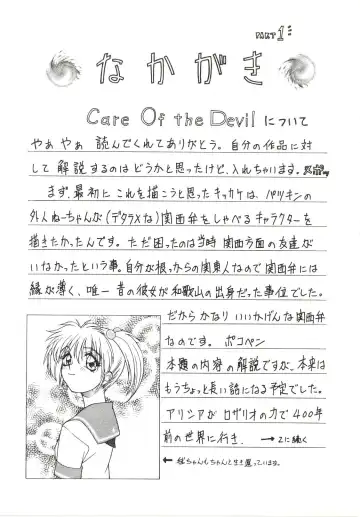 PART1:
なかがき
Care Of the Devilについて
やぁ やぁ 読んでくれてありがとう。自分の作品に対
して 解説するのはどうかと思ったけど、入れちゃいます。
まず、最初に これを描こうと思ったキッカケは、パツキンの
外人ねーちゃんが(デタラメな)関西弁をしゃべるキャラクターを
描きたかったんです。 ただ困ったのは当時 関西方面の友達が
いなかったという事。自分が根っからの関東人なので関西弁には
縁が薄く、唯一 昔の彼女が和歌山の出身だった事位でした。
だから かなり いいかげんな関西弁
なのです。 ポコペン
本題の内容の解説ですが、本来は
もうちょっと長い話になる予定でした。
アリシアが ロザリオの力で400年
前の世界に行き、 →2に続く
← ちゃんもちゃんと生き返っています。